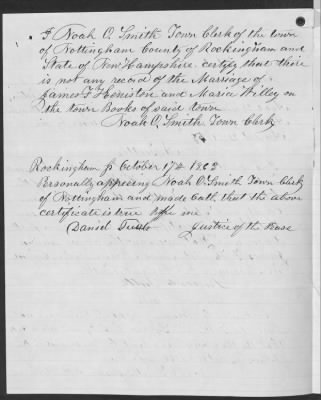 I Noah O. Smith Town Clerk of the town
of Nottingham County of Rockingham and
State of New Hampshire certify that there
is not any record of the Marriage of
James F Heniston and Maria Willey on
the town Books of said town
Noah O, Smith Town Clerk
Rockingham Ss October 17th
Personally appering Noah O. Smith Town Clerk
of Nottingham and made Oath that the above
certificate is true before me
Daniel Justice of the Pease